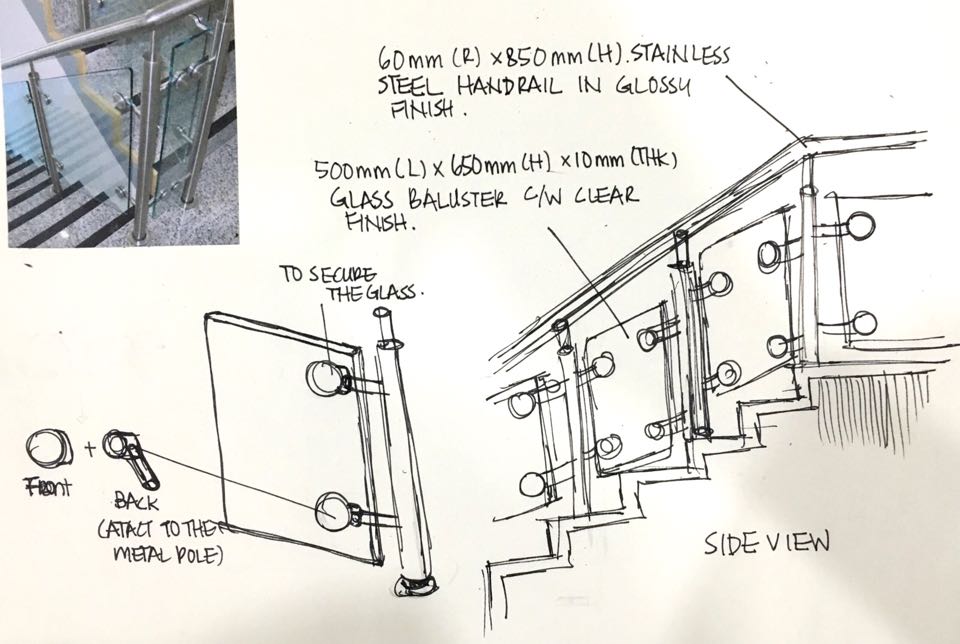 60mm (R) x 850mm (H). STAINLESS
STEEL HANDRAIL IN GLOSSY
FINISH.
500mm (L) x 650mm (H) x 10mm (THK)
GLASS BALUSTER C/W CLEAR
FINISH.
TO SECURE
THE GLASS.
+
Front
BACK
(ATACT TO THE
METAL POLE)
SIDE VIEW